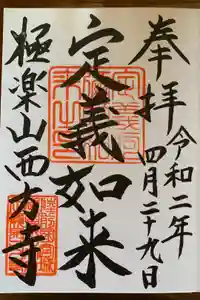 奉拝
令和二年
四月二十九日
定義如来
極楽山西方寺